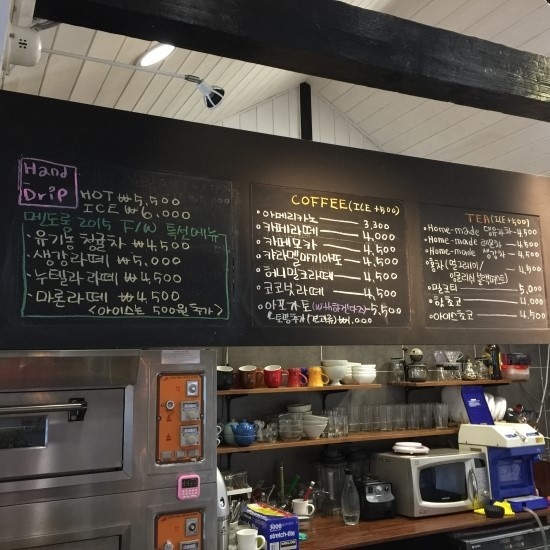 Hand
Drip
HOT ₩5,500
ICE ₩6,000
메도록 2015 F/W 특선메뉴
· 유기농 ₩4,500
· 생강라떼 ₩5,000
· 누텔라라떼 ₩4,500
· 마론라떼 ₩4,500
<아이스는 500원 추가>
COFFEE (ICE +500)
· 아메리카노 3,300
· 카페라떼 4,000
· 카페모카 4,500
· 캬라멜마끼아또 4,500
· 허니밀크라떼 4,500
· 코코넛라떼 4,500
· 아포가토 5,500
TEA (ICE +500)
· Home-made 4,500
· Home-made 레몬차 4,500
· Home-made 생강차 4,500
· 홍차 (얼그레이/ 4,500
잉글리쉬 블랙퍼스트)
· 밀크티 5,000
· 핫초코 4,000
· 아이스초코 4,500
3000
stretch-tite